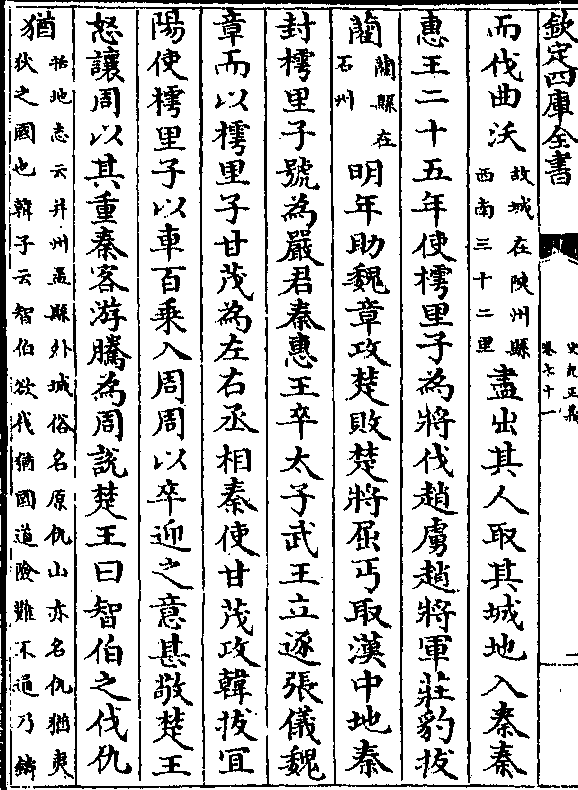 欽定四庫全書
史記正義
卷七十一
一
而伐曲沃
故城在陜州縣
西南三十二里
盡出其人取其城地入秦秦
惠王二十五年使樗里子為將伐趙虜趙將軍莊豹拔
藺
藺縣在
石州
明年助魏章攻楚敗楚將屈丐取漢中地秦
封樗里子號為嚴君秦惠王卒太子武王立逐張儀魏
章而以樗里子甘茂為左右丞相秦使甘茂攻韓拔宜
陽使樗里子以車百乗入周周以卒迎之意甚敬楚王
怒讓周以其重秦客游騰為周說楚王曰智伯之伐仇
猶
括地志云并州盂縣外城俗名原仇山亦名仇猶夷
狄之國也韓子云智伯欲伐猶國道險難不通乃鑄